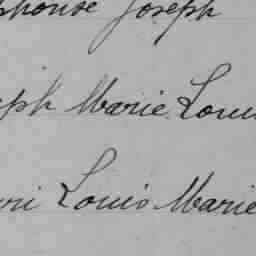 phonse Joseph
eph Marie Louis
nri Louis Marie